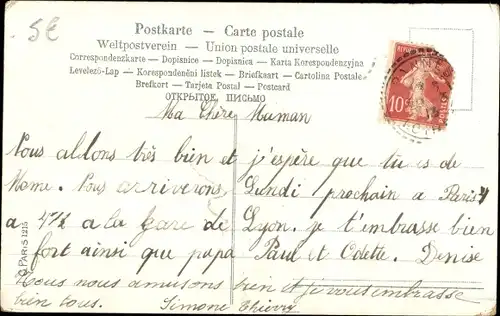 5€
Postkarte - Carte postale
Weltpostverein - Union postale universelle
Correspondenzkarte - Dopisnice - Dopisnica - Karta Korespondenzyjna
Levelező-Lap - Korespondenční listek - Briefkaart - Cartolina Postale
Brefkort - Tarjeta Postal - Postcard
ОТКРЫТОЕ ПИСЬМО
10
POSTES
Ma Chère Maman
Nous allons très bien et j'espère que tu es de
Meme. Nous arriverons Lundi prochain a Paris
a 4h½ a la gare de Lyon. je t'embrasse bien
fort ainsi que papa Paul et Odette. Denise
Nous nous amusons bien et je vous embrasse
bien tous. Simone Thierry
PARIS 1215